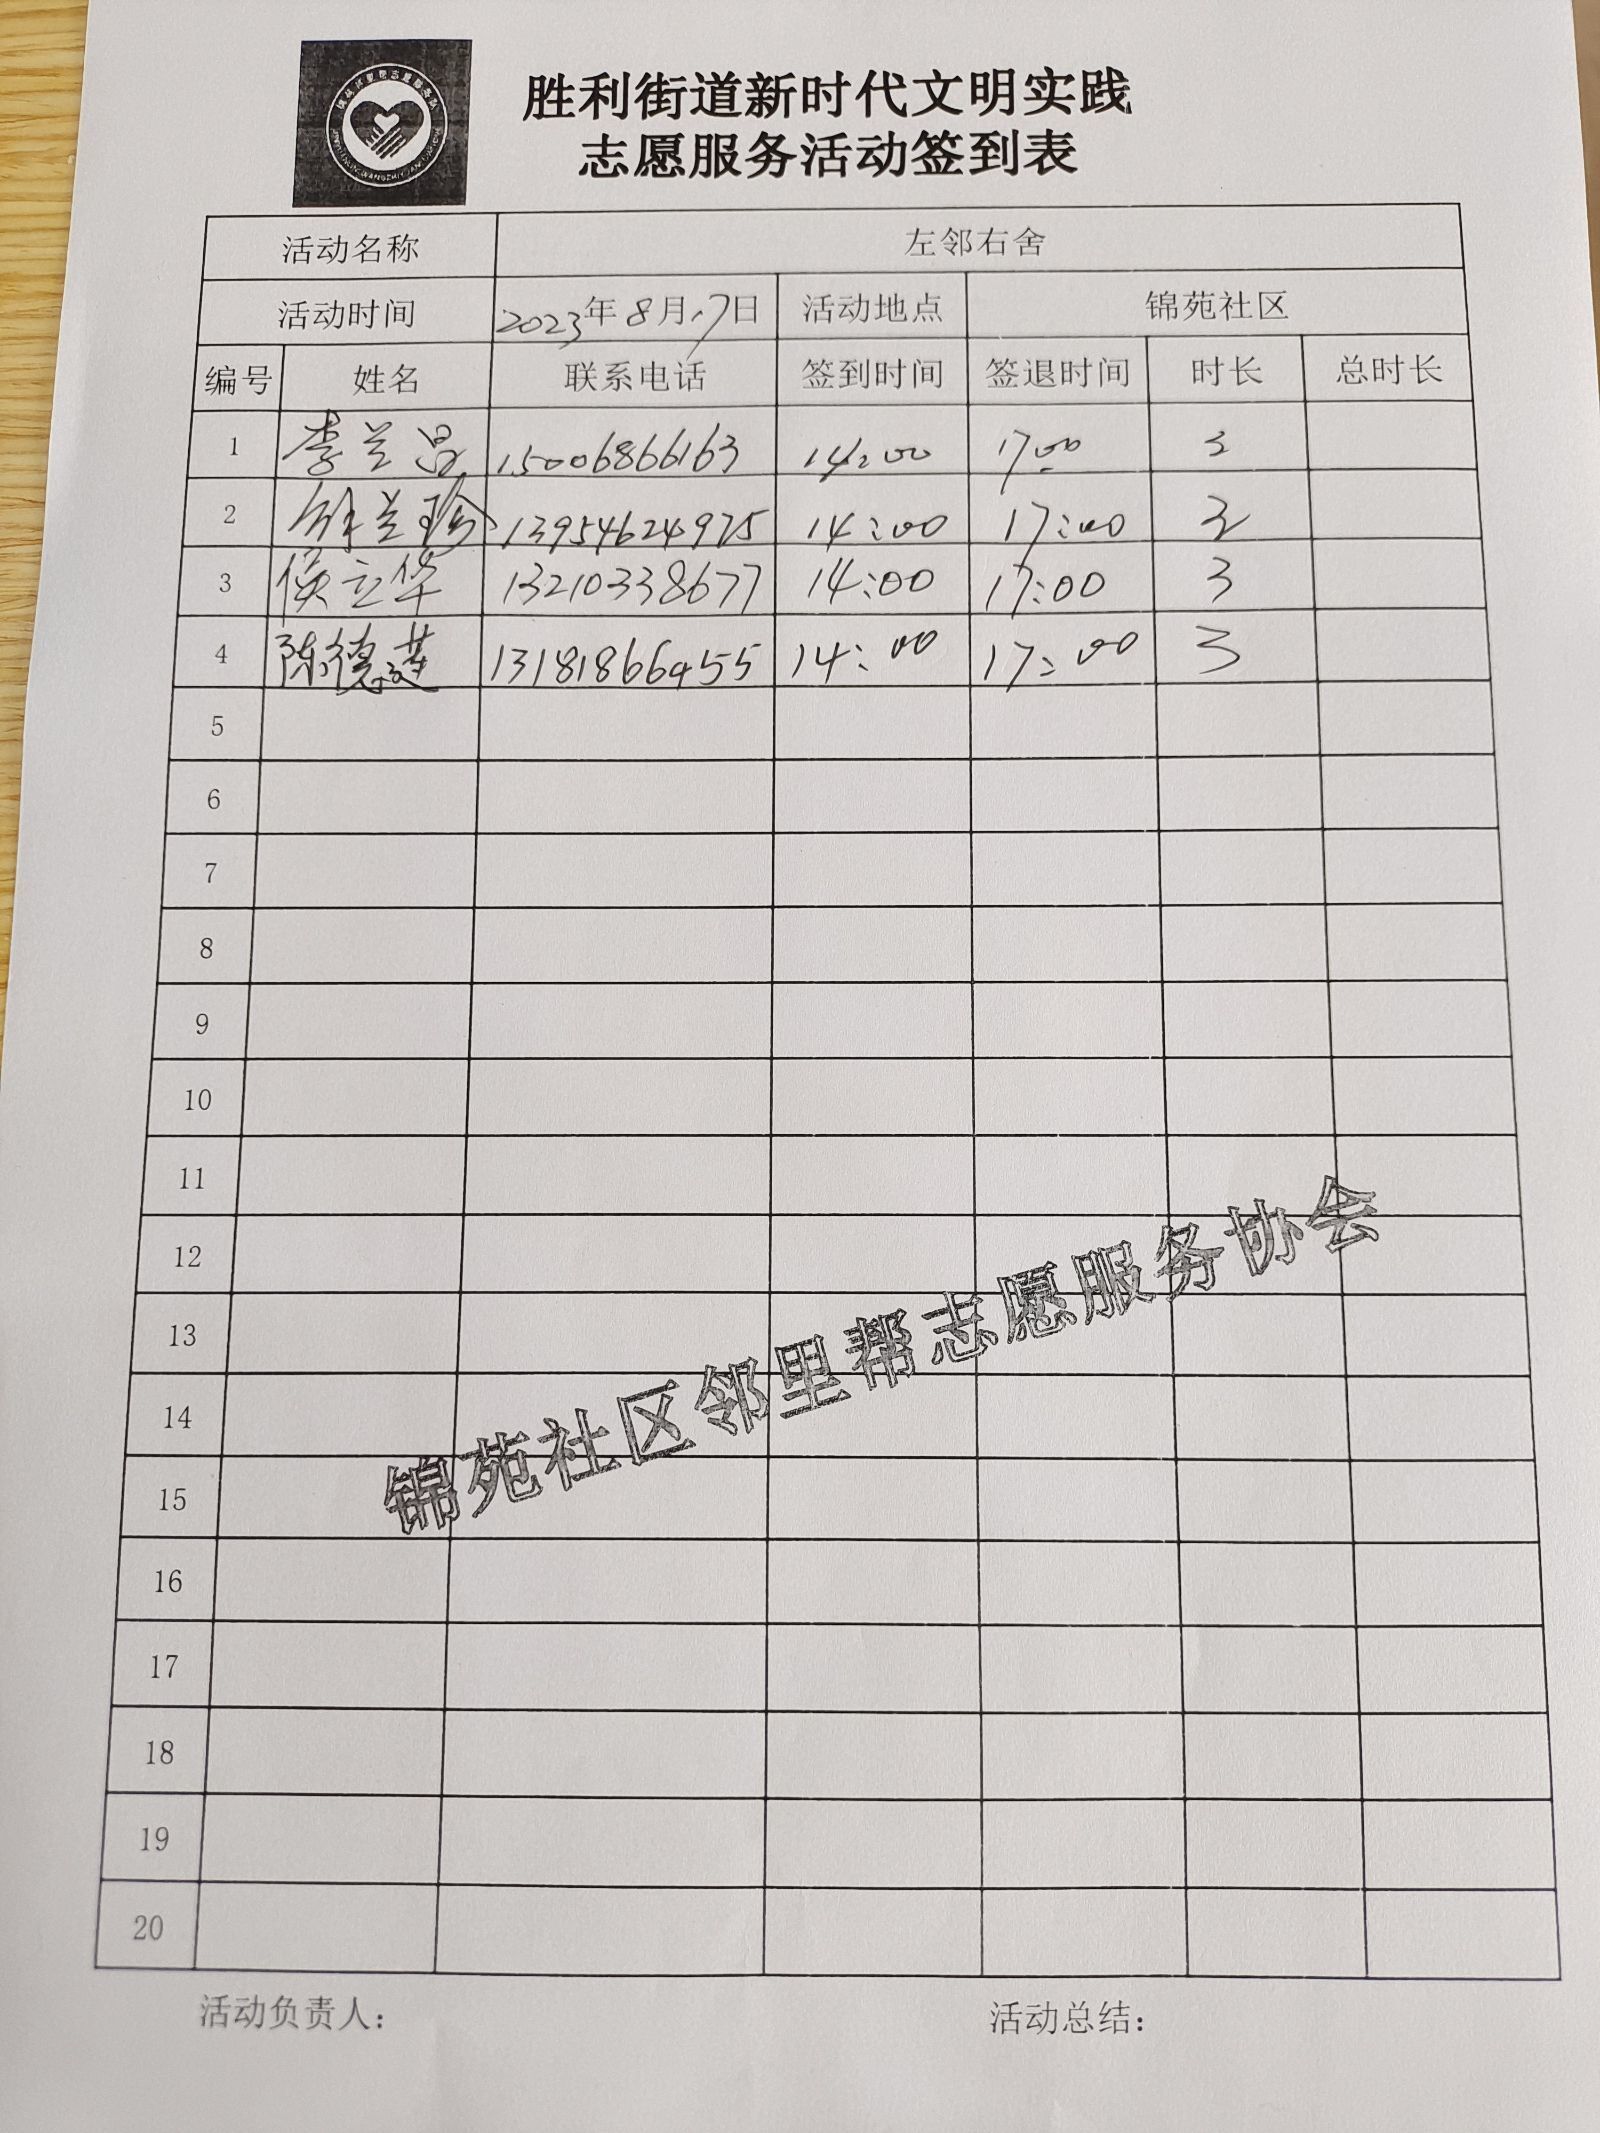 胜利街道新时代文明实践
志愿服务活动签到表
活动名称 左邻右舍
活动时间 2023年8月17日 活动地点 锦苑社区
编号 姓名 联系电话 签到时间 签退时间 时长 总时长
1 李兰昌 15006866163 14:00 17:00 3
2 徐兰珍 13954624975 14:00 17:00 3
3 侯立华 13210338677 14:00 17:00 3
4 陈德莲 13181866955 14:00 17:00 3
5
6
7
8
9
10
11
12
13
14
15
16
17
18
19
20
锦苑社区邻里帮志愿服务协会
活动负责人： 活动总结：